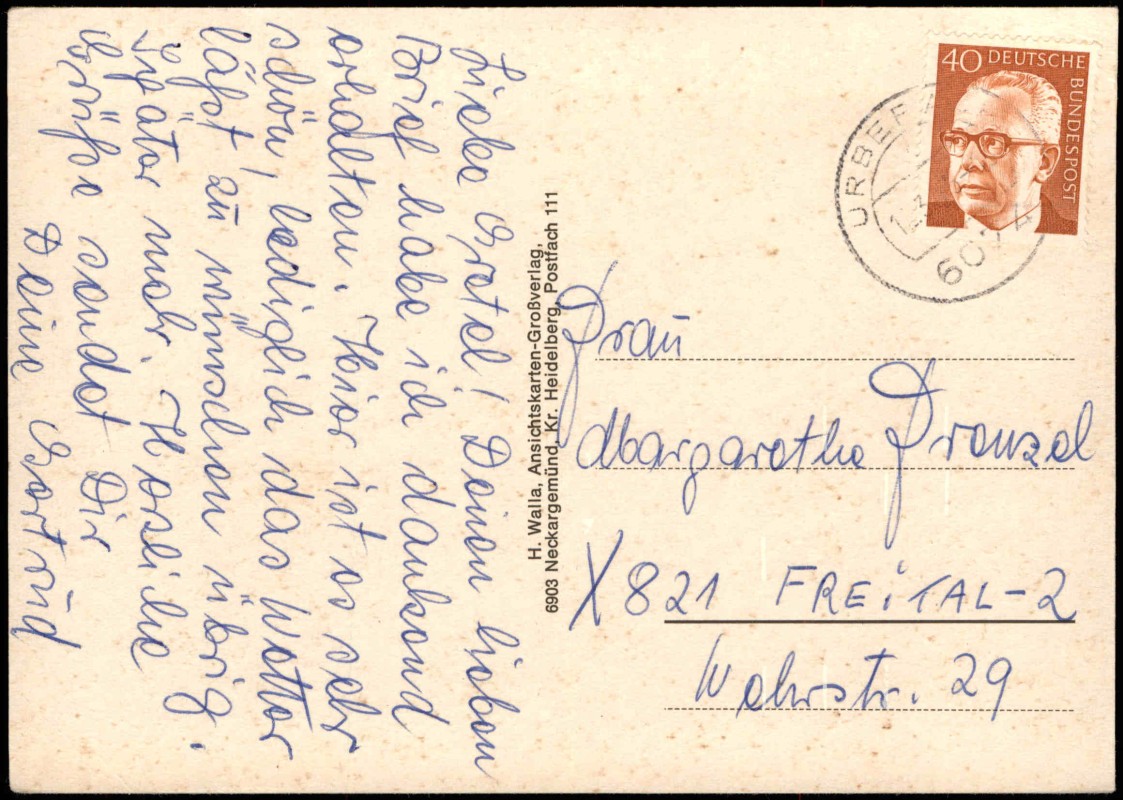 Liebe Gretel! Deinen lieben
Brief habe ich dankend
erhalten. Hier ist es sehr
schön, lediglich das Wetter
läßt zu wünschen übrig.
Später mehr. Herzliche
Grüße sendet Dir
Deine Gertrud
H. Walla, Ansichtskarten-Großverlag,
6903 Neckargemünd, Kr. Heidelberg, Postfach 111
40 DEUTSCHE
BUNDESPOST
Frau
Margarethe Prenzel
X 821 FREiTAL-2
Wehrstr. 29